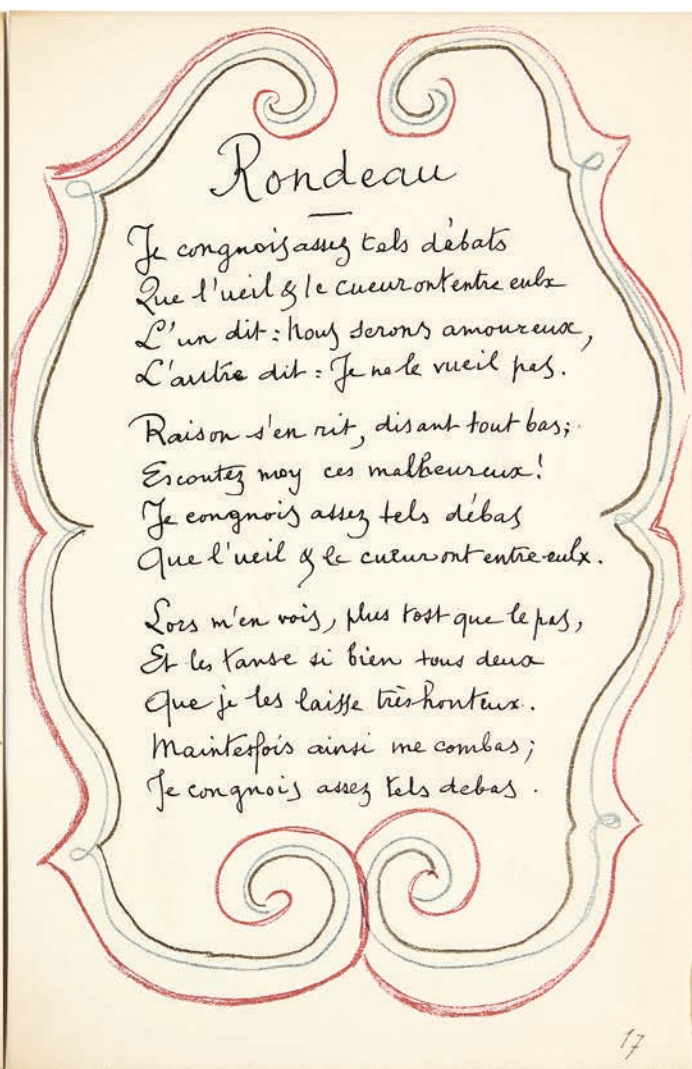 Rondeau
Je congnois assez tels débats
Que l'ueil & le cueur ont entre eulx
L'un dit : nous serons amoureux,
L'autre dit : Je ne le vueil pas.
Raison s'en rit, disant tout bas;
Escoutez moy ces malheureux!
Je congnois assez tels débas
Que l'ueil & le cueur ont entre eulx.
Lors m'en vois, plus tost que le pas,
Et les tanse si bien tous deux
Que je les laisse très honteux.
Maintesfois ainsi me combas;
Je congnois assez tels debas.
17